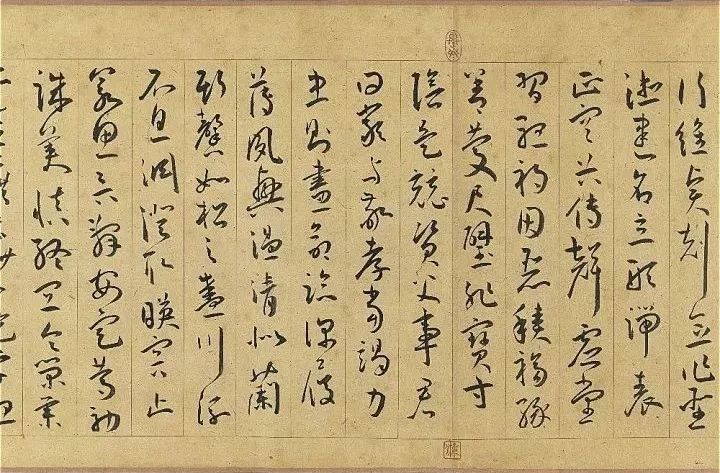 行維賢剋念作聖
德建名立形端表
正空谷傳聲虛堂
習聽禍因惡積福緣
善慶尺璧非寶寸
陰是競資父事君
曰嚴與敬孝當竭力
忠則盡命臨深履
薄夙興溫清似蘭
斯馨如松之盛川流
不息淵澄取暎容止
若思言辭安定篤初
誠美慎終宜令榮業